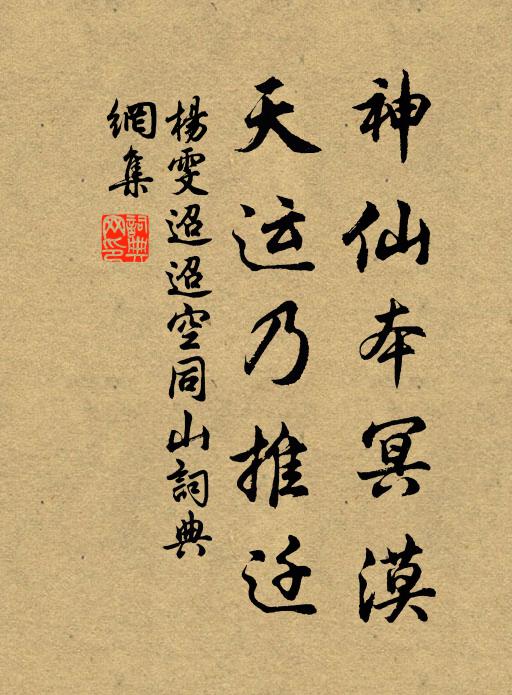 神仙本冥漠
天运乃推迁
楊雯迢迢空同山詞典
網集
詞典
网印